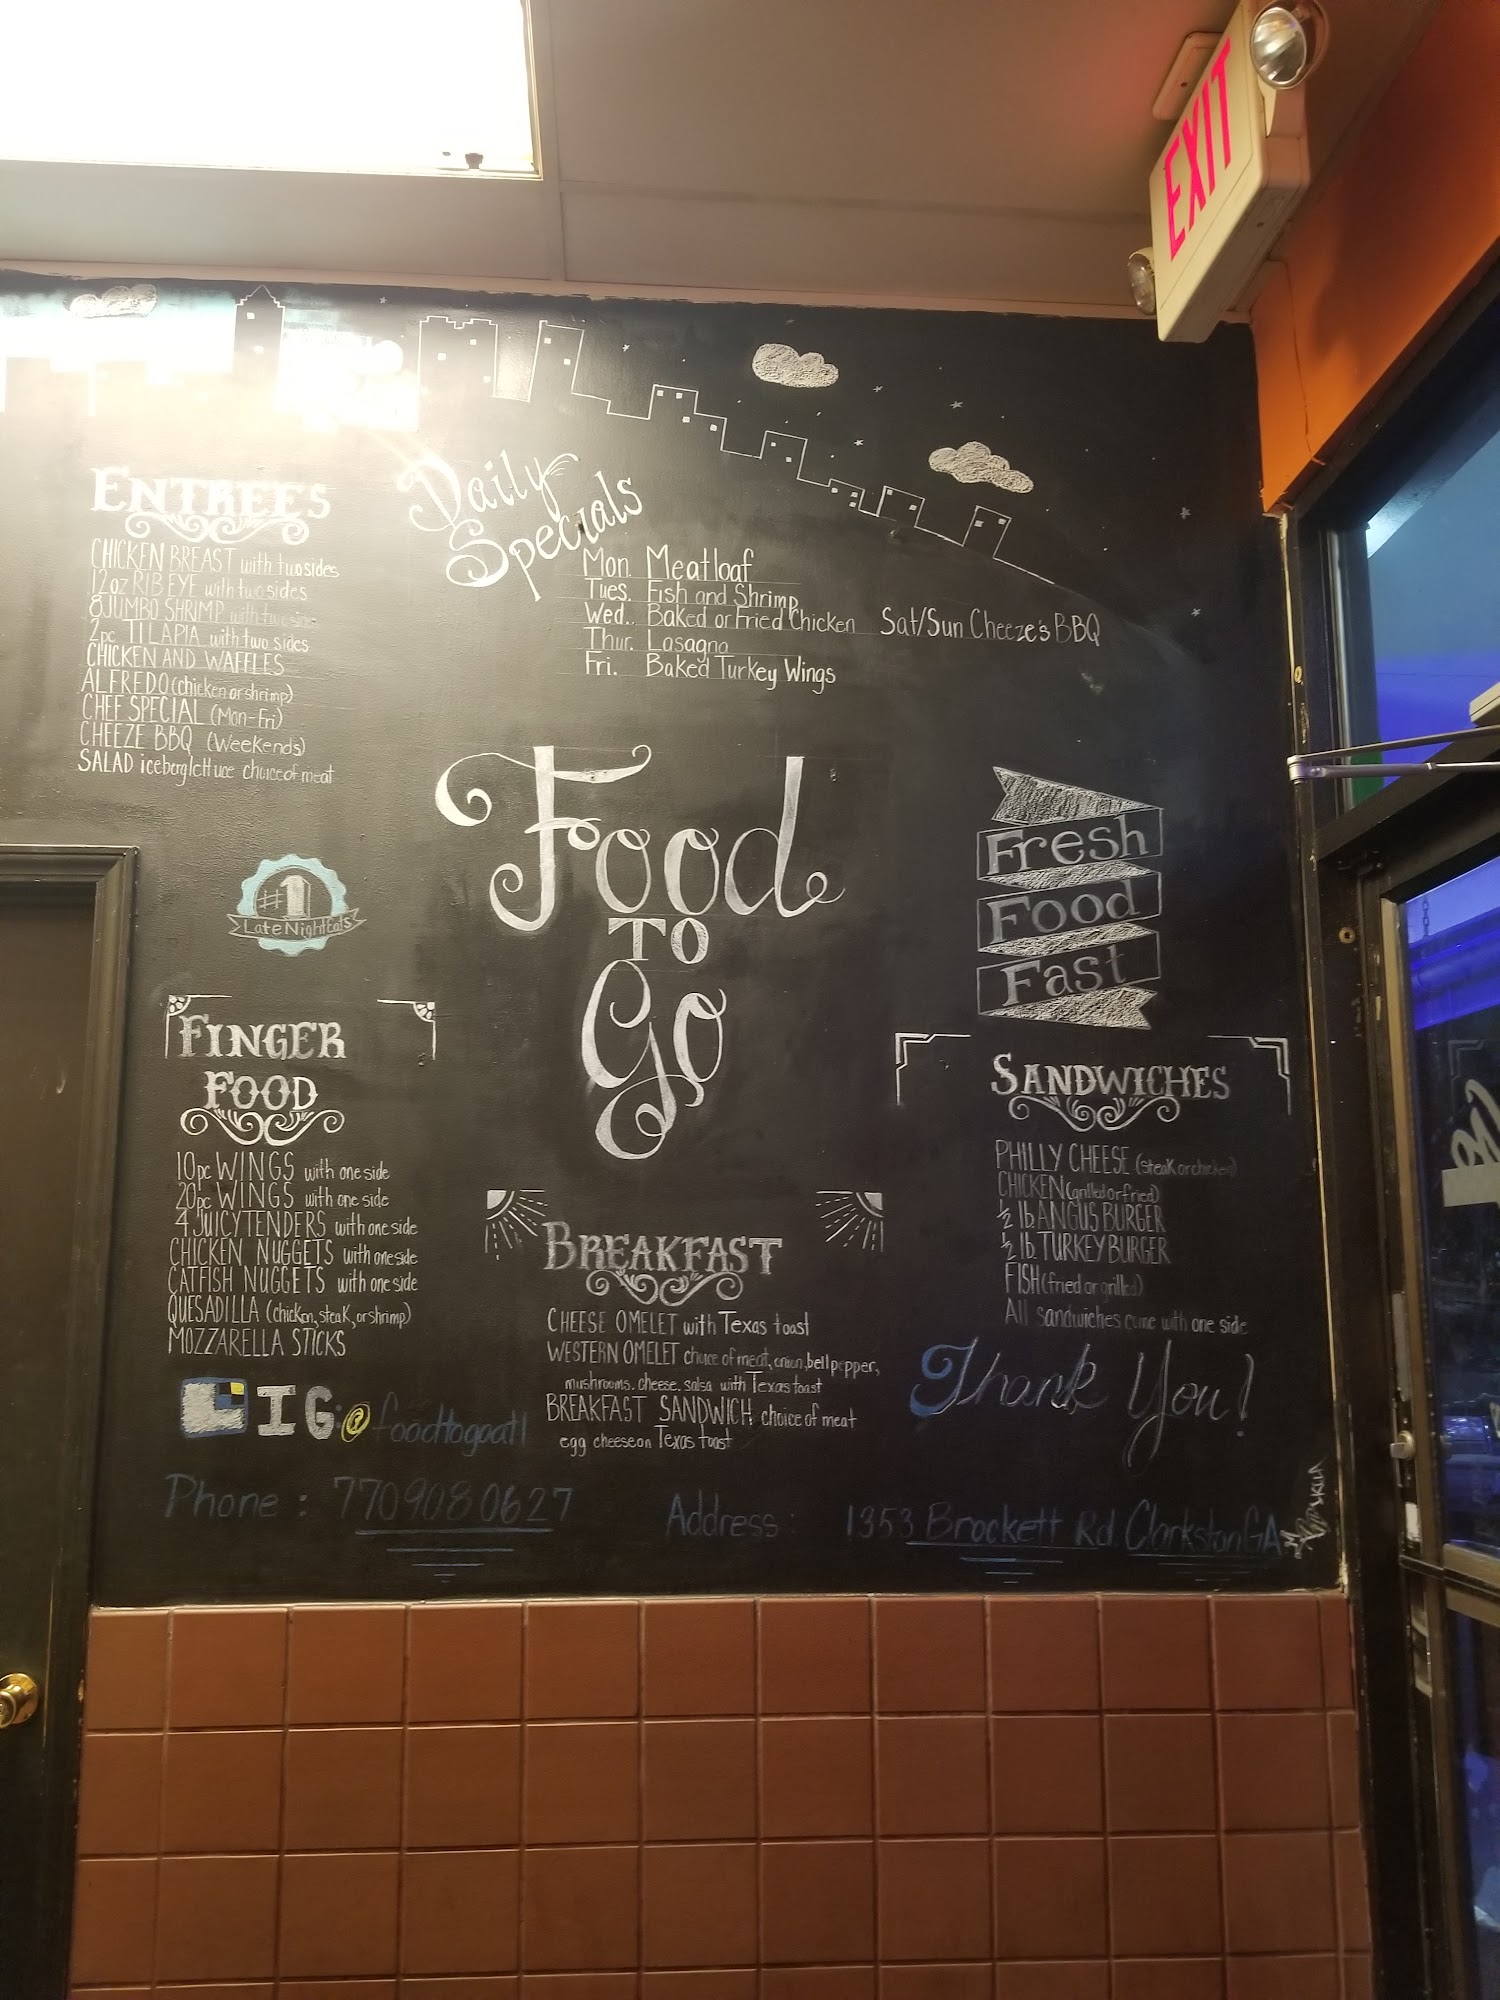 EXIT
ENTREES
CHICKEN BREAST with two sides
12oz RIB EYE with two sides
8 JUMBO SHRIMP with two sides
2pc TILAPIA with two sides
CHICKEN AND WAFFLES
ALFREDO (chicken or shrimp)
CHEF SPECIAL (Mon-Fri)
CHEEZE BBQ (Weekends)
SALAD iceberg lettuce choice of meat
Daily
Specials
Mon Meatloaf
Tues. Fish and Shrimp
Wed.. Baked or Fried Chicken
Thur. Lasagna
Fri. Baked Turkey Wings
Sat/Sun Cheeze's BBQ
Food
TO
Go
Fresh
Food
Fast
#1
Late Night Eats
FINGER
FOOD
10pc WINGS with one side
20pc WINGS with one side
4 JUICY TENDERS with one side
CHICKEN NUGGETS with one side
CATFISH NUGGETS with one side
QUESADILLA (chicken, steak, or shrimp)
MOZZARELLA STICKS
BREAKFAST
CHEESE OMELET with Texas toast
WESTERN OMELET choice of meat, onion, bell pepper,
mushrooms. cheese. salsa with Texas toast
BREAKFAST SANDWICH choice of meat
egg cheese on Texas toast
SANDWICHES
PHILLY CHEESE (steak or chicken)
CHICKEN (grilled or fried)
1/2 lb. ANGUS BURGER
1/2 lb. TURKEY BURGER
FISH (fried or grilled)
All sandwiches come with one side
Thank You!
IG: @foodtogoatl
Phone: 7709080627
Address: 1353 Brockett Rd. Clarkston GA